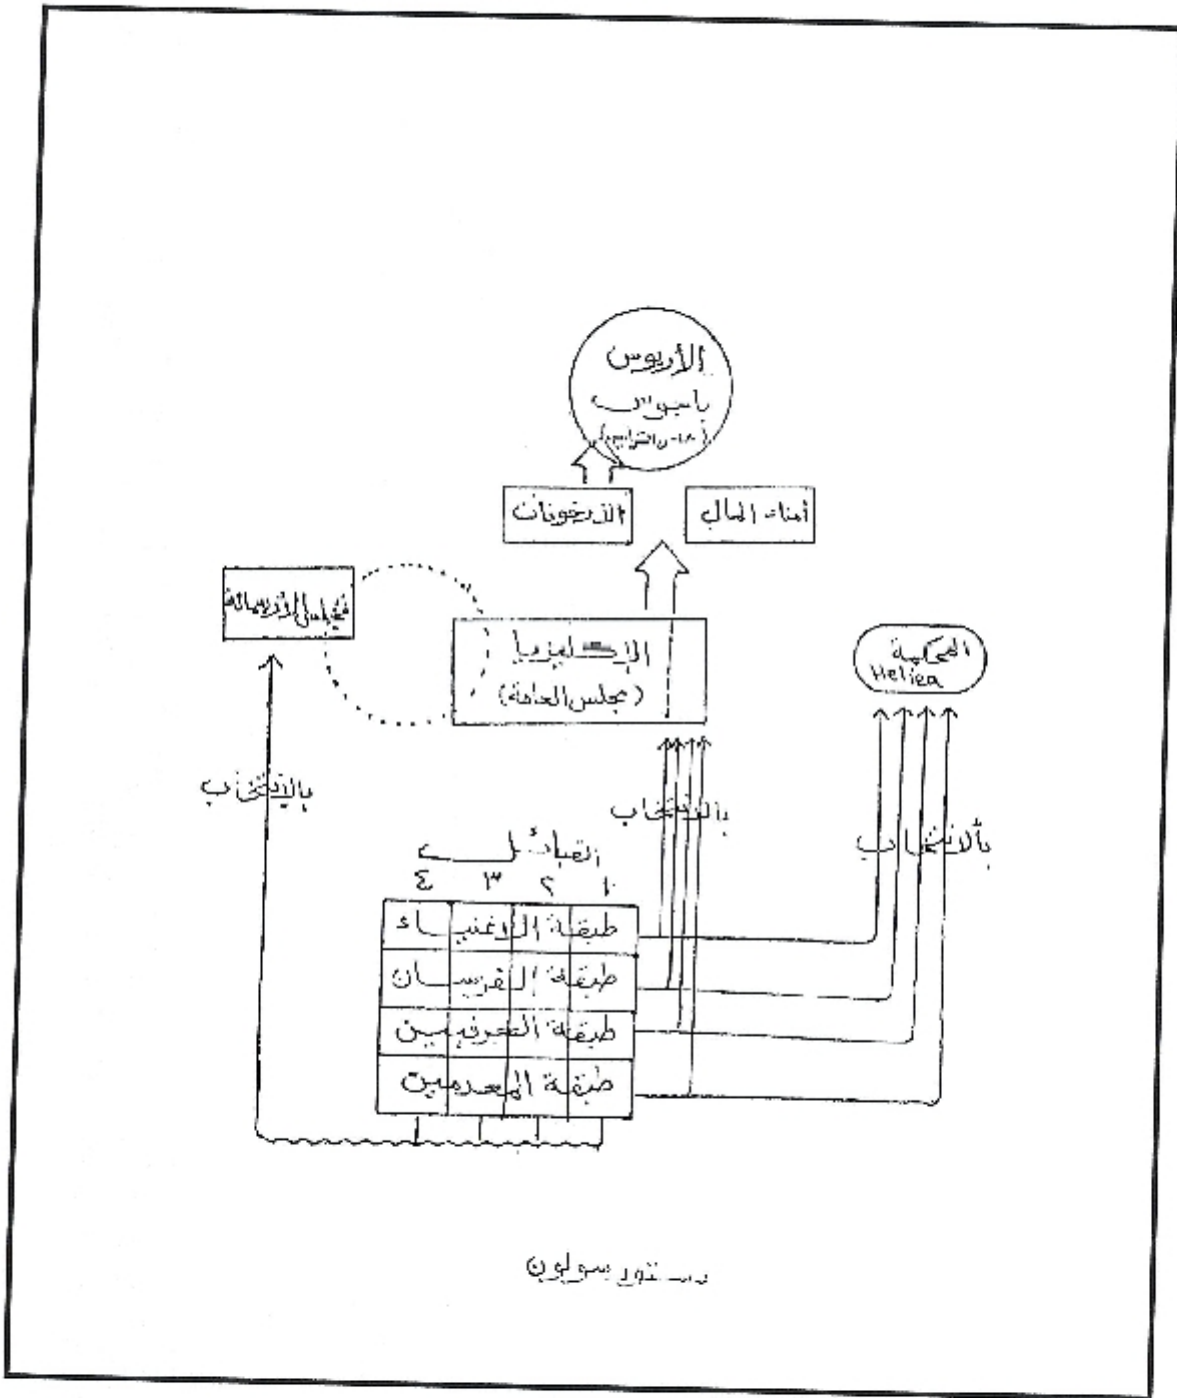 الأريوس
باجوس
أمناء المال
الأرخونات
مجلس الأربعمائة
الإكليزيا
(مجلس العامة)
المحكمة
Heliea
بالإنتخاب
بالانتخاب
بألانتخاب
القبائل
١ ٢ ٣ ٤
طبقة الاغنياء
طبقة الفرسان
طبقة الحرفيين
طبقة المعدمين
دستور سولون